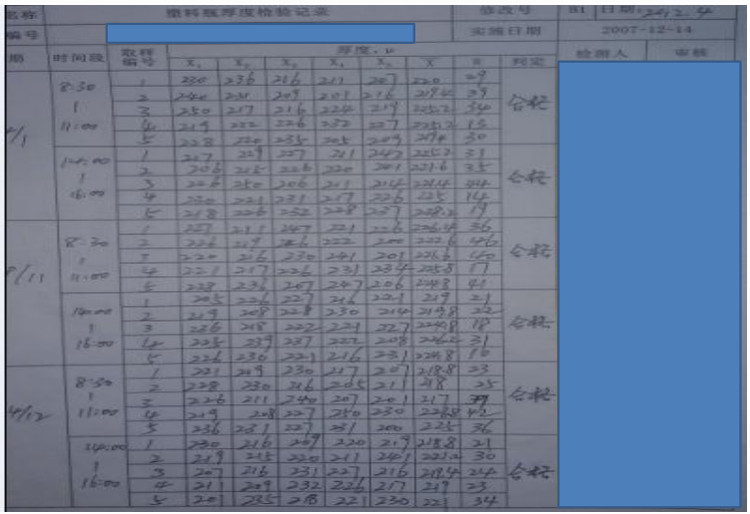 名称 塑料瓶厚度检验记录 修改号 B1 日期: 2012.4
编号 实施日期 2007-12-14
期 时间段 取样编号 厚度.μ 判定 检测人 审核
X₁ X₂ X₃ X₄ X₅ X̄ R
8:30 1 230 236 216 211 207 220 29
2 219.4
3 250 217 216 224 219 225.2 34 合格
11:00 4 219 222 226 232 227 225.2 13
5 228 220 235 205 209 30
14:00 1 217 229 227 211 242 225.2 31
2 206 215 226 220 241 221.6 35
3 250 206 211 214 44 合格
16:00 4 230 221 231 217 226 225 14
5 218 226 232 228 237 228.2 19
8:30 1 227 211 247 221 226 226.4 36
2 226 219 222 200 222.6 46
3 220 216 230 241 201 40 合格
11:00 4 221 217 226 231 234 225.8 17
5 228 236 207 247 206 224.8 41
14:00 1 205 226 227 216 221 219 21
2 219 208 228 230 214 219.8 22
3 236 218 222 221 227 224.8 18 合格
16:00 4 225 239 237 222 208 226.2 31
5 226 230 221 216 231 224.8 16
8:30 1 221 209 230 217 207 218.8 23
2 228 230 216 205 211 218 25
3 226 211 240 207 201 217 39 合格
4/12 11:00 4 219 208 227 250 230 226.8 42
5 236 231 227 231 200 225 36
14:00 1 230 216 209 220 219 218.8 21
2 219 215 220 211 241 221.2 30
3 207 216 231 227 216 219.4 24 合格
16:00 4 211 209 232 226 217 219 23
5 201 235 218 221 230 221 34